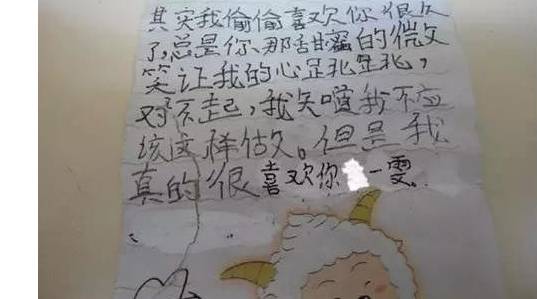 其实我偷偷喜欢你很久
了,总是你那甜蜜的微
笑让我的心
对不起,我知道我不应
该这样做。但是我
真的很喜欢你一雯。